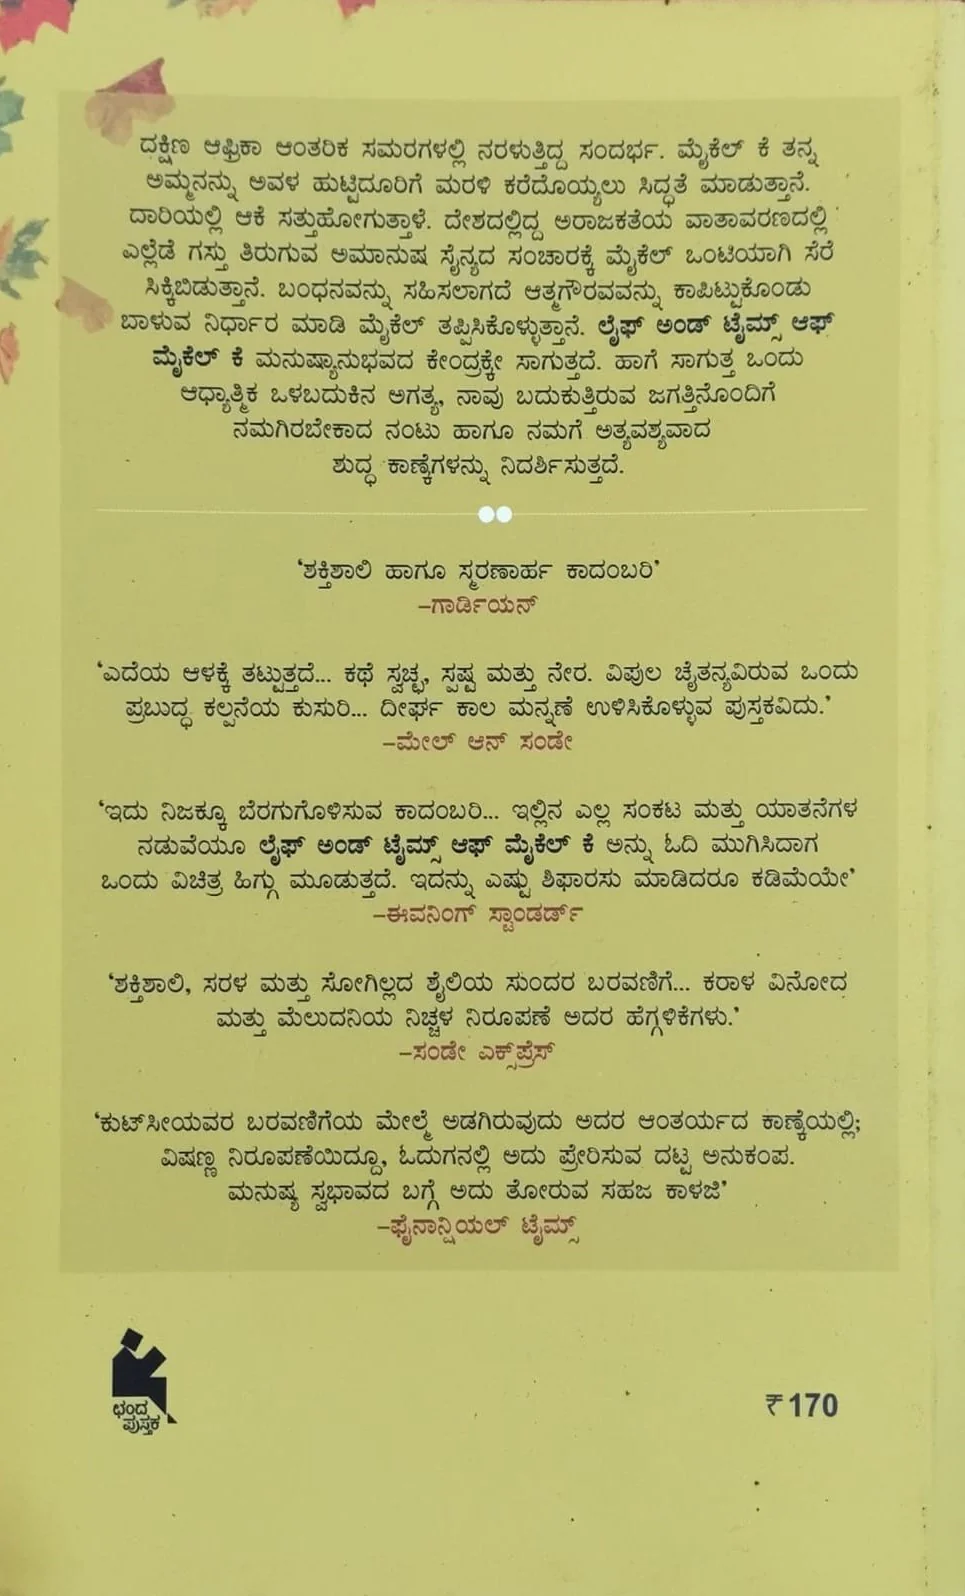 ದಕ್ಷಿಣ ಆಫ್ರಿಕಾ ಆಂತರಿಕ ಸಮರಗಳಲ್ಲಿ ನರಳುತ್ತಿದ್ದ ಸಂದರ್ಭ. ಮೈಕೆಲ್ ಕೆ ತನ್ನ
ಅಮ್ಮನನ್ನು ಅವಳ ಹುಟ್ಟಿದೂರಿಗೆ ಮರಳಿ ಕರೆದೊಯ್ಯಲು ಸಿದ್ಧತೆ ಮಾಡುತ್ತಾನೆ.
ದಾರಿಯಲ್ಲಿ ಆಕೆ ಸತ್ತುಹೋಗುತ್ತಾಳೆ. ದೇಶದಲ್ಲಿದ್ದ ಅರಾಜಕತೆಯ ವಾತಾವರಣದಲ್ಲಿ
ಎಲ್ಲೆಡೆ ಗಸ್ತು ತಿರುಗುವ ಅಮಾನುಷ ಸೈನ್ಯದ ಸಂಚಾರಕ್ಕೆ ಮೈಕೆಲ್ ಒಂಟಿಯಾಗಿ ಸೆರೆ
ಸಿಕ್ಕಿಬಿಡುತ್ತಾನೆ. ಬಂಧನವನ್ನು ಸಹಿಸಲಾಗದೆ ಆತ್ಮಗೌರವವನ್ನು ಕಾಪಿಟ್ಟುಕೊಂಡು
ಬಾಳುವ ನಿರ್ಧಾರ ಮಾಡಿ ಮೈಕೆಲ್ ತಪ್ಪಿಸಿಕೊಳ್ಳುತ್ತಾನೆ. ಲೈಫ್ ಅಂಡ್ ಟೈಮ್ಸ್ ಆಫ್
ಮೈಕೆಲ್ ಕೆ ಮನುಷ್ಯಾನುಭವದ ಕೇಂದ್ರಕ್ಕೇ ಸಾಗುತ್ತದೆ. ಹಾಗೆ ಸಾಗುತ್ತ ಒಂದು
ಆಧ್ಯಾತ್ಮಿಕ ಒಳಬದುಕಿನ ಅಗತ್ಯ, ನಾವು ಬದುಕುತ್ತಿರುವ ಜಗತ್ತಿನೊಂದಿಗೆ
ನಮಗಿರಬೇಕಾದ ನಂಟು ಹಾಗೂ ನಮಗೆ ಅತ್ಯವಶ್ಯವಾದ
ಶುದ್ಧ ಕಾಣ್ಕೆಗಳನ್ನು ನಿದರ್ಶಿಸುತ್ತದೆ.
‘ಶಕ್ತಿಶಾಲಿ ಹಾಗೂ ಸ್ಮರಣಾರ್ಹ ಕಾದಂಬರಿ’
–ಗಾರ್ಡಿಯನ್
‘ಎದೆಯ ಆಳಕ್ಕೆ ತಟ್ಟುತ್ತದೆ... ಕಥೆ ಸ್ವಚ್ಛ, ಸ್ಪಷ್ಟ ಮತ್ತು ನೇರ. ವಿಪುಲ ಚೈತನ್ಯವಿರುವ ಒಂದು
ಪ್ರಬುದ್ಧ ಕಲ್ಪನೆಯ ಕುಸುರಿ... ದೀರ್ಘ ಕಾಲ ಮನ್ನಣೆ ಉಳಿಸಿಕೊಳ್ಳುವ ಪುಸ್ತಕವಿದು.’
–ಮೇಲ್ ಆನ್ ಸಂಡೇ
‘ಇದು ನಿಜಕ್ಕೂ ಬೆರಗುಗೊಳಿಸುವ ಕಾದಂಬರಿ... ಇಲ್ಲಿನ ಎಲ್ಲ ಸಂಕಟ ಮತ್ತು ಯಾತನೆಗಳ
ನಡುವೆಯೂ ಲೈಫ್ ಅಂಡ್ ಟೈಮ್ಸ್ ಆಫ್ ಮೈಕೆಲ್ ಕೆ ಅನ್ನು ಓದಿ ಮುಗಿಸಿದಾಗ
ಒಂದು ವಿಚಿತ್ರ ಹಿಗ್ಗು ಮೂಡುತ್ತದೆ. ಇದನ್ನು ಎಷ್ಟು ಶಿಫಾರಸು ಮಾಡಿದರೂ ಕಡಿಮೆಯೇ’
–ಈವನಿಂಗ್ ಸ್ಟಾಂಡರ್ಡ್
‘ಶಕ್ತಿಶಾಲಿ, ಸರಳ ಮತ್ತು ಸೋಗಿಲ್ಲದ ಶೈಲಿಯ ಸುಂದರ ಬರವಣಿಗೆ... ಕರಾಳ ವಿನೋದ
ಮತ್ತು ಮೆಲುದನಿಯ ನಿಚ್ಚಳ ನಿರೂಪಣೆ ಅದರ ಹೆಗ್ಗಳಿಕೆಗಳು.’
–ಸಂಡೇ ಎಕ್ಸ್‌ಪ್ರೆಸ್
‘ಕುಟ್‌ಸೀಯವರ ಬರವಣಿಗೆಯ ಮೇಲ್ಮೆ ಅಡಗಿರುವುದು ಅದರ ಆಂತರ್ಯದ ಕಾಣ್ಕೆಯಲ್ಲಿ;
ವಿಷಣ್ಣ ನಿರೂಪಣೆಯಿದ್ದೂ, ಓದುಗನಲ್ಲಿ ಅದು ಪ್ರೇರಿಸುವ ದಟ್ಟ ಅನುಕಂಪ.
ಮನುಷ್ಯ ಸ್ವಭಾವದ ಬಗ್ಗೆ ಅದು ತೋರುವ ಸಹಜ ಕಾಳಜಿ’
–ಫೈನಾನ್ಷಿಯಲ್ ಟೈಮ್ಸ್
ಛಂದ
ಪುಸ್ತಕ
₹170